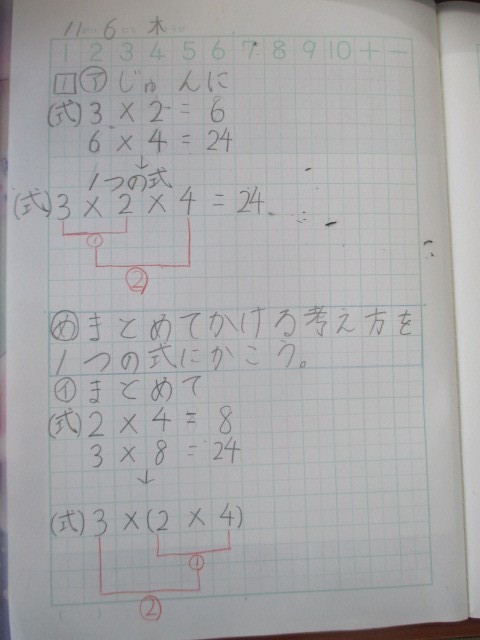 11 6 木
1 2 3 4 5 6 7 8 9 10 + −
1 ㋐ じゅんに
(式) 3 × 2 = 6
6 × 4 = 24
↓
1つの式
(式) 3 × 2 × 4 = 24
①
②
め まとめてかける考え方を
1つの式にかこう。
㋑ まとめて
(式) 2 × 4 = 8
3 × 8 = 24
↓
(式) 3 × (2 × 4)
①
②